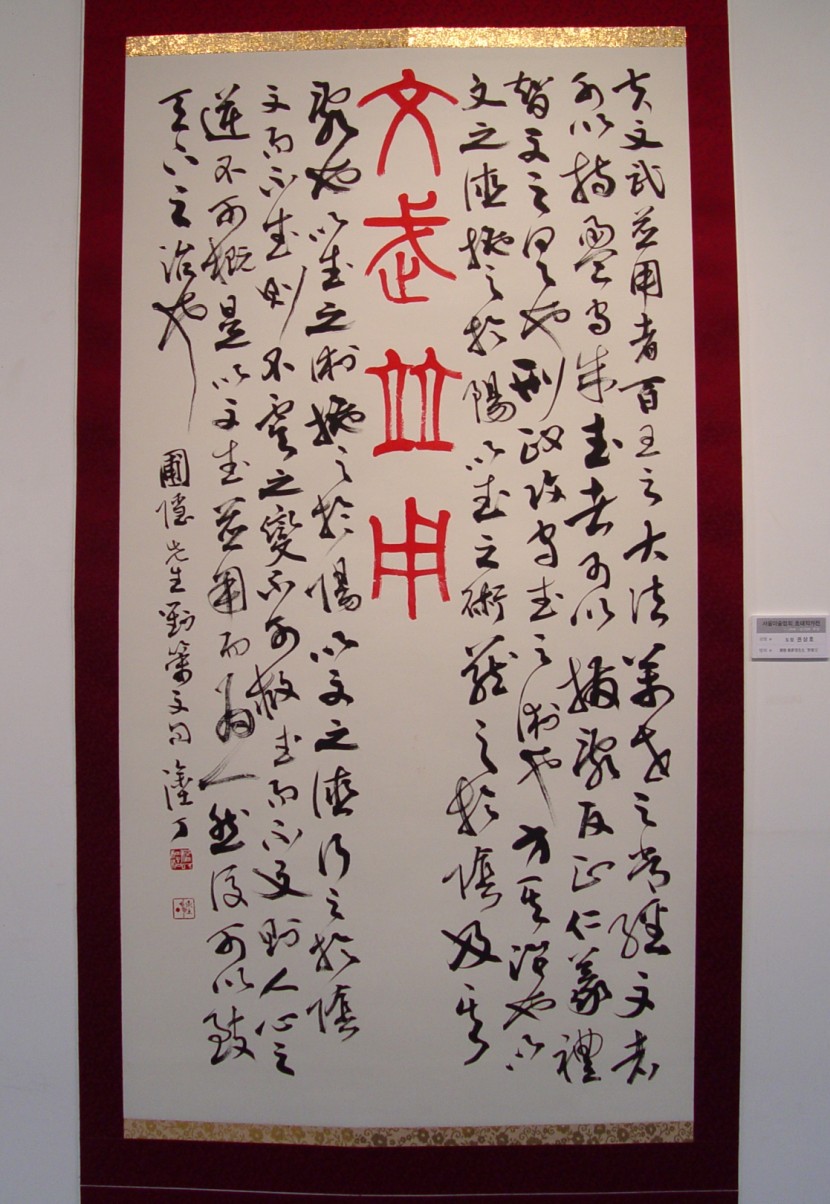 夫文武並用者百王之大法萬世之常經文者
所以持盈守成武者所以撥亂反正仁義禮
智文之具也刑政攻守武之術也方其治也以
文之德施之於陽以武之術藏之於陰及其
文武並用
亂也以武之術施之於陽以文之德行之於陰
文而不武則不虞之變不可救武而不文則人心之
逆不可概是以文武並用而為一然後可以致
天下之治也
圃隱先生對策文句